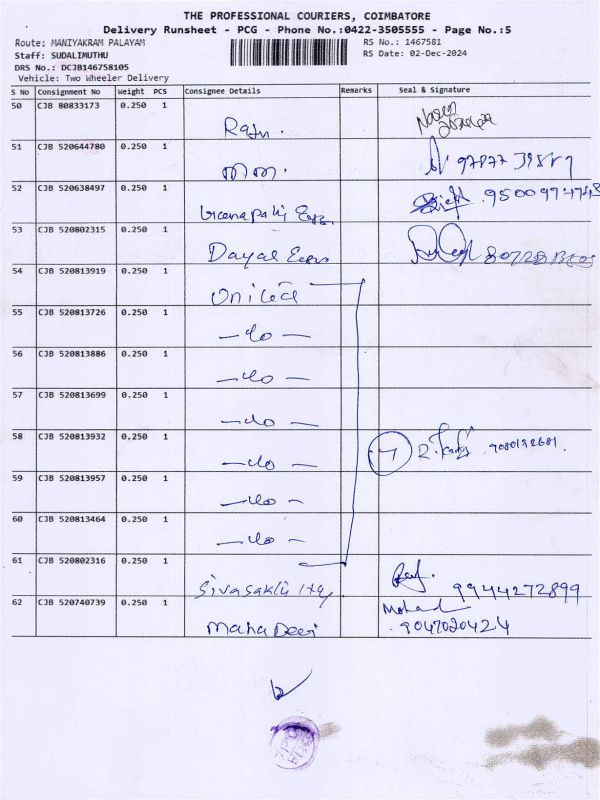 THE PROFESSIONAL COURIERS, COIMBATORE
Delivery Runsheet - PCG - Phone No.:0422-3505555 - Page No.:5
Route; MANIYAKRAM PALAYAM RS No.: 1467581
Staff: SUDALIMUTHU RS Date: 02-Dec-2024
DRS No.: DCJB146758105
Vehicle: Two Wheeler Delivery
S No Consignment No Weight PCS Consignee Details Remarks Seal & Signature
50 CJB 80833173 0.250 1
Raju.
51 CJB 520644780 0.250 1
52 CJB 520638497 0.250 1
53 CJB 520802315 0.250 1
Dayal
54 CJB 520813919 0.250 1
United
55 CJB 520813726 0.250 1
- do -
56 CJB 520813886 0.250 1
- do -
57 CJB 520813699 0.250 1
- do -
58 CJB 520813932 0.250 1
- do - 7 9080192681.
59 CJB 520813957 0.250 1
- do -
60 CJB 520813464 0.250 1
- do -
61 CJB 520802316 0.250 1
Sivasakthi 9944272899
62 CJB 520740739 0.250 1
Maha Devi 9047020424